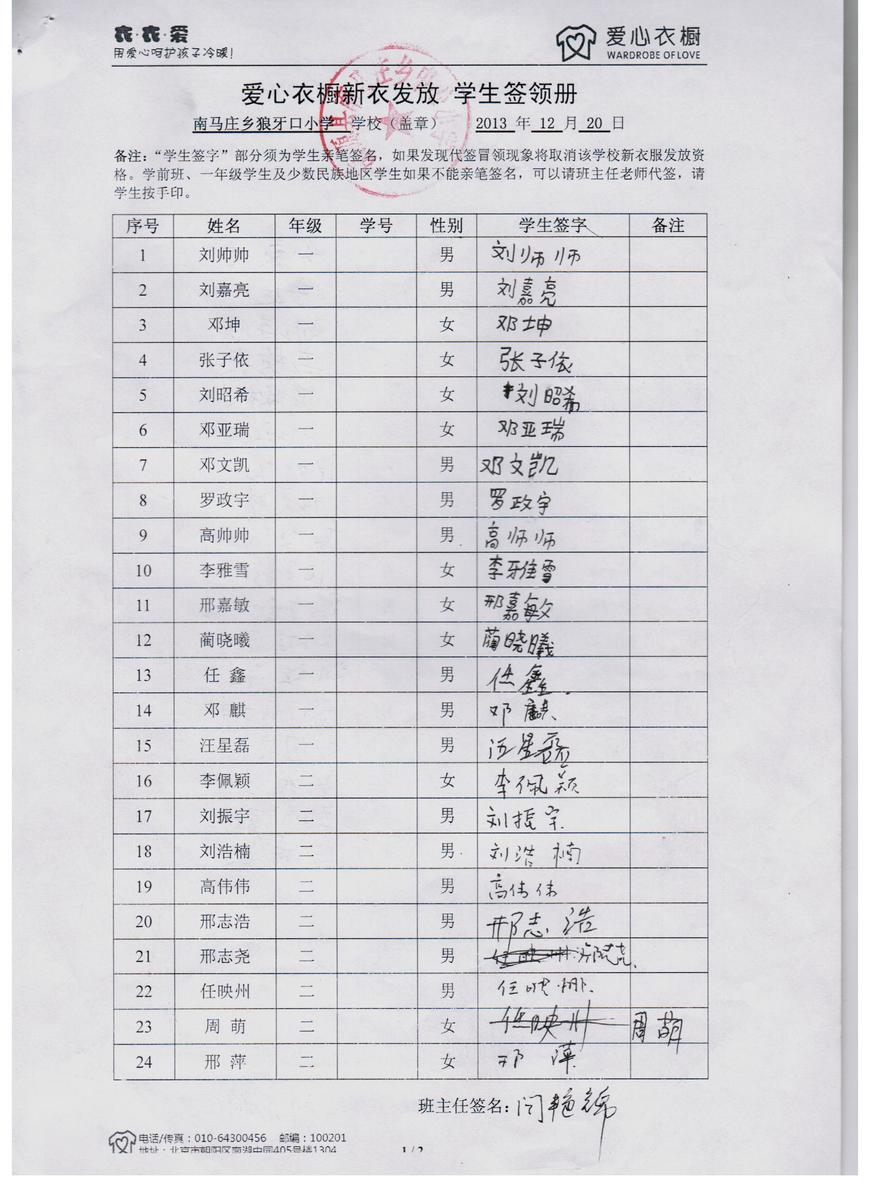 衣·衣·爱
用爱心呵护孩子冷暖!
爱心衣橱
WARDROBE OF LOVE
爱心衣橱新衣发放 学生签领册
南马庄乡狼牙口小学 学校（盖章） 2013 年 12 月 20 日
备注：“学生签字”部分须为学生亲笔签名，如果发现代签冒领现象将取消该学校新衣服发放资
格。学前班、一年级学生及少数民族地区学生如果不能亲笔签名，可以请班主任老师代签，请
学生按手印。
序号 姓名 年级 学号 性别 学生签字 备注
1 刘帅帅 一 男 刘师师
2 刘嘉亮 一 男 刘嘉亮
3 邓坤 一 女 邓坤
4 张子依 一 女 张子依
5 刘昭希 一 女 刘昭希
6 邓亚瑞 一 女 邓亚瑞
7 邓文凯 一 男 邓文凯
8 罗政宇 一 男 罗政宇
9 高帅帅 一 男 高师师
10 李雅雪 一 女 李雅雪
11 邢嘉敏 一 女 邢嘉敏
12 蔺晓曦 一 女 蔺晓曦
13 任鑫 一 男 任鑫
14 邓麒 一 男 邓麒
15 汪星磊 一 男 汪星磊
16 李佩颖 二 女 李佩颖
17 刘振宇 二 男 刘振宇
18 刘浩楠 二 男 刘浩楠
19 高伟伟 二 男 高伟伟
20 邢志浩 二 男 邢志浩
21 邢志尧 二 男
22 任映州 二 男 任映州
23 周萌 二 女 任映州 周萌
24 邢萍 二 女 邢萍
班主任签名：闫艳锦
电话/传真：010-64300456 邮编：100201
地址：北京市朝阳区南湖中园405号楼1304
1 / 2